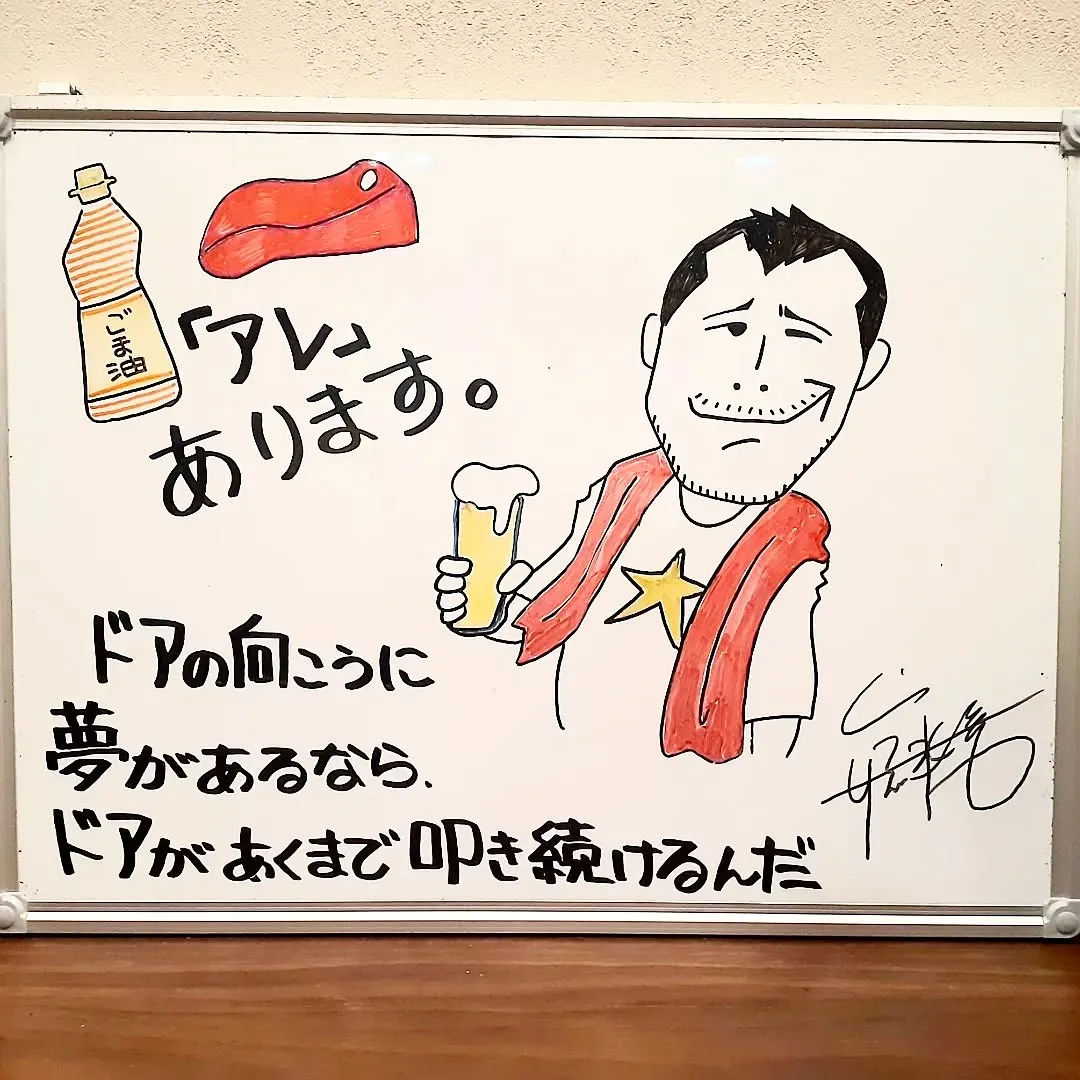 ごま油
「アレ」
あります。
ドアの向こうに
夢があるなら、
ドアがあくまで叩き続けるんだ